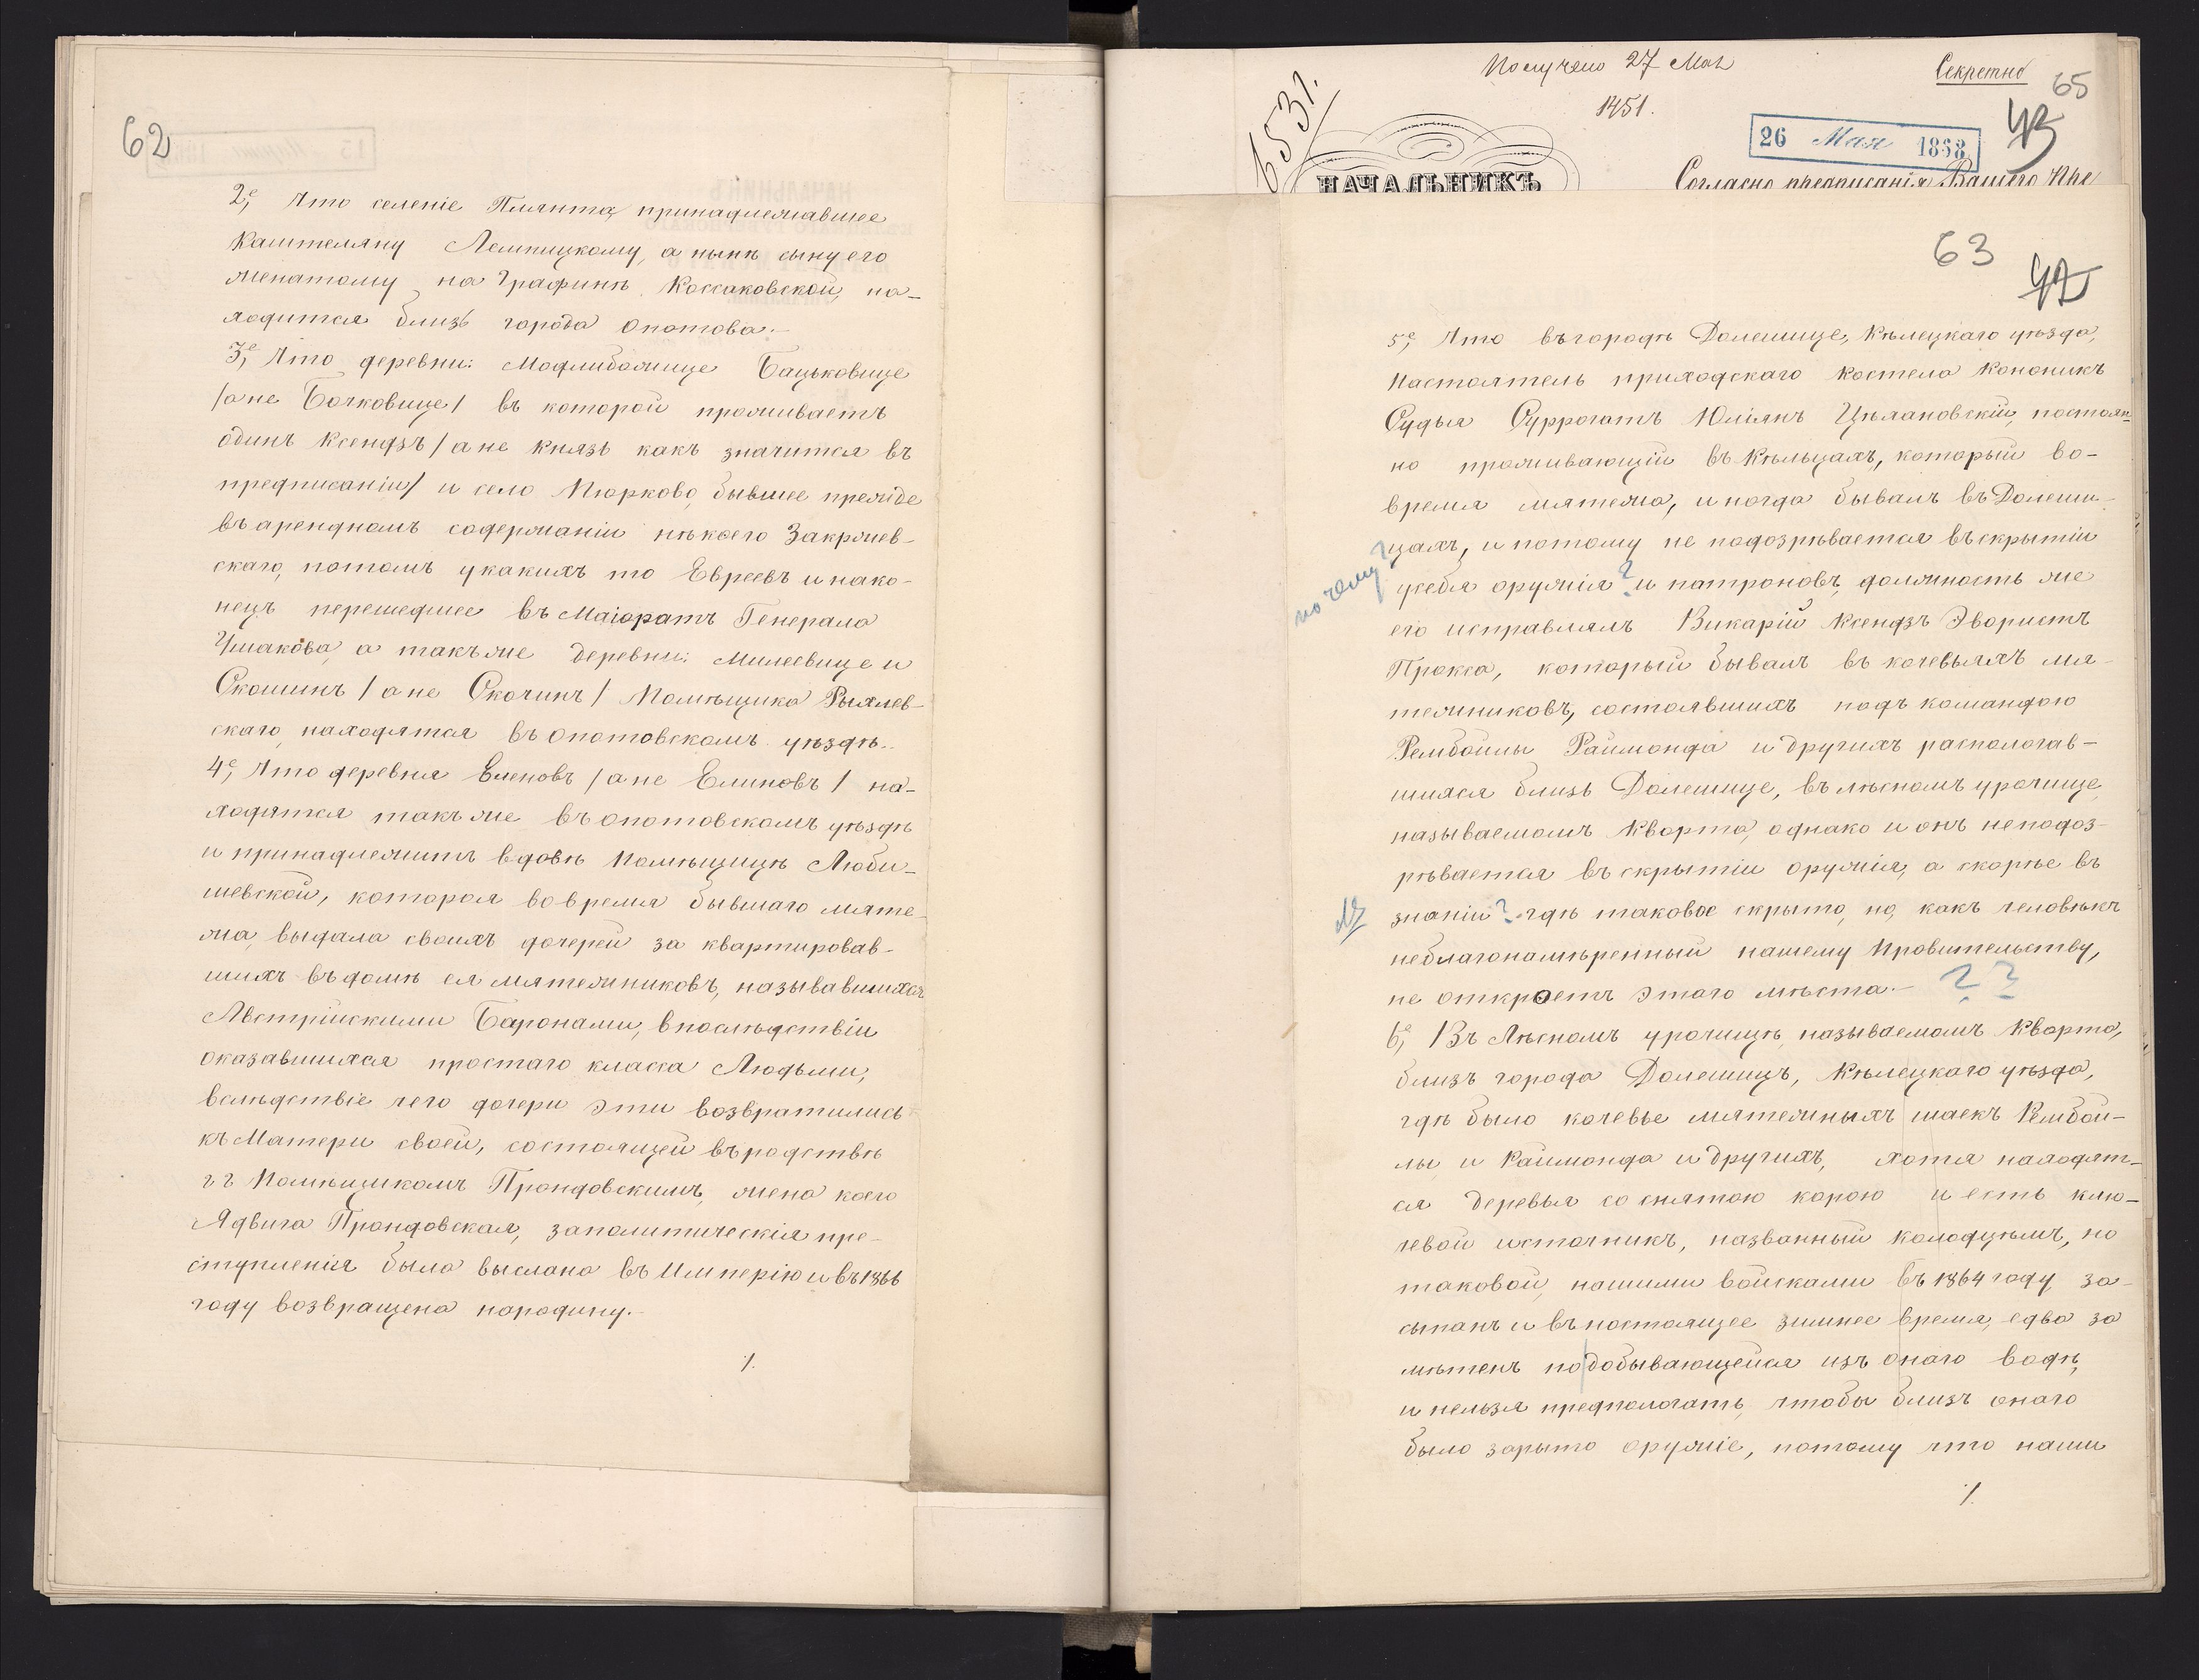 62
2е, Что селеніе Плянта, принадлежавшее
Каштеляну Лемпицкому, а нынѣ сыну его
женатому на Графинѣ Коссаковской, на-
ходится близь города Опатова.-
3е, Что деревни: Модлибожице Бацьковице
/а не Бочковице/ въ которой проживаетъ
одинъ Ксендзъ /а не Князь какъ значится въ
предписаніи/ и село Пюрково, бывшее прежде
въ арендномъ содержаніи нѣкоего Закржев-
скаго, потомъ у какихъ то Евреевъ и нако-
нецъ перешедшее въ Маіоратъ Генерала
Ушакова, а такъ же деревни: Милеевице и
Скошинъ /а не Скочинъ/ Помѣщика Рыхлев-
скаго, находятся въ Опатовскомъ уѣздѣ..
4е, Что деревня Еленовъ /а не Елиновъ/ на-
ходится такъ же въ Опатовскомъ уѣздѣ
и принадлежитъ вдовѣ Помѣщицѣ Люби-
шевской, которая во время бывшаго мяте-
жа, выдала своихъ дочерей за квартировав-
шихъ въ домѣ ея мятежниковъ, называвшихся
Австрійскими Баронами, впослѣдствіи
оказавшихся простаго класса Людьми,
вслѣдствіе чего дочери эти возвратились
къ Матери своей, состоящей въ родствѣ
съ Помѣщикомъ Прондовскимъ, жена коего
Ядвига Прондовская, за политическія пре-
ступленія была выслана въ Имперію и въ 1866
году возвращена на родину.-
/.
Получено 27 Мая
1451.
Секретно
65
43
6531.
26 Мая 1868
НАЧАЛЬНИКЪ
Согласно предписанія Вашего Пре
63
42
5е, Что въ городѣ Далешице, Кѣлецкаго уѣзда,
Настоятель приходскаго костела Каноникъ
Судья Суррогатъ Юліянъ Цѣлановскій, постоян-
но проживающій въ Кѣльцахъ, который во-
время мятежа, иногда бывалъ въ Далеши-
цахъ, и потому не подозрѣвается въ скрытіи
почему?
у себя оружія ? и патроновъ, должность же
его исправлялъ Викарій Ксендзъ Эваристъ
Пракса, который бывалъ въ кочевьяхъ мя-
тежниковъ, состоявшихъ подъ командою
Рембайлы Раймонда и другихъ распологав-
шихся близь Далешице, въ лѣсномъ урочище,
называемомъ Кварта, однако и онъ не подоз-
рѣвается въ скрытіи оружія, а скорѣе въ
знаніи ? гдѣ таковое скрыто, но, какъ человѣкъ
неблагонамѣренный нашему Правительству,
не откроетъ этаго мѣста.- ? ?
6е, Въ Лѣсномъ урочищѣ, называемомъ Кварта,
близъ города Далешицъ, Кѣлецкаго уѣзда,
гдѣ было кочевье мятежныхъ шаекъ Рембай-
лы и Раймонда и другихъ, хотя находят-
ся деревья со снятою корою и есть клю-
чевой источникъ, названный колодцемъ, но
таковой, нашими войсками въ 1864 году за-
сыпанъ и въ настоящее зимнее время, едва за
мѣтенъ по добывающейся изъ онаго водѣ,
и нельзя предполагать, чтобы близъ онаго
было зарыто оружіе, потому что наши
/.